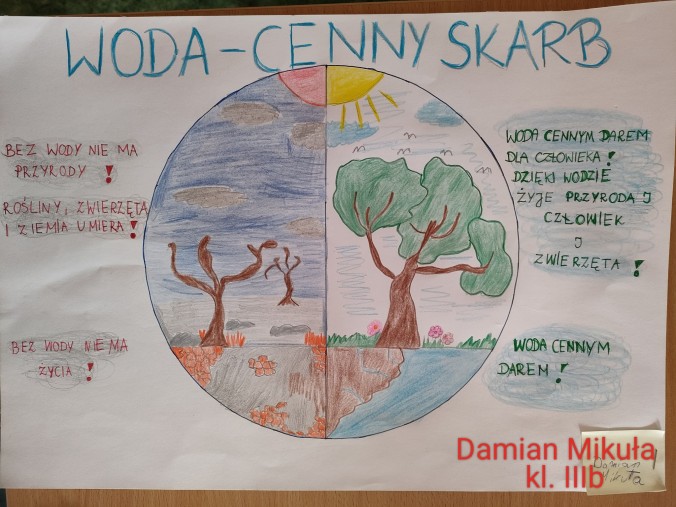 WODA - CENNY SKARB
BEZ WODY NIE MA
PRZYRODY !
ROŚLINY, ZWIERZĘTA
I ZIEMIA UMIERA !
BEZ WODY NIE MA
ŻYCIA !
WODA CENNYM DAREM
DLA CZŁOWIEKA !
DZIĘKI WODZIE
ŻYJE PRZYRODA I
CZŁOWIEK
I
ZWIERZĘTA !
WODA CENNYM
DAREM !
Damian Mikuła
kl. IIIb
Damian
Mikuła